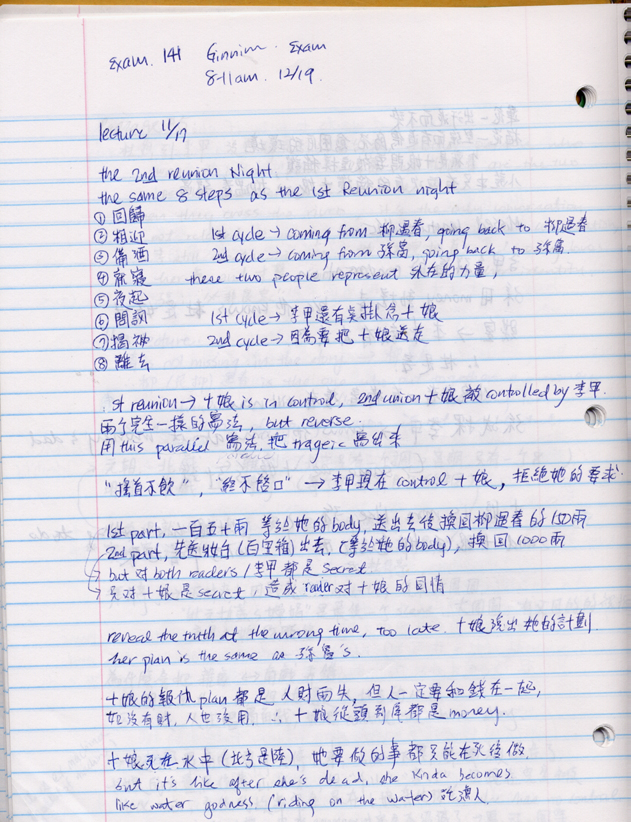 Exam. 141 Exam
8-11am. 12/19.
lecture 11/17
the 2nd reunion Night.
the same 8 steps as the 1st Reunion night
① 回歸
② 相迎 1st cycle → coming from 柳遇春, going back to 柳遇春
③ 備酒 2nd cycle → coming from 孫富, going back to 孫富.
④ 就寢 these two people represent 外在的力量,
⑤ 夜起
⑥ 問訊 1st cycle → 李甲還有点掛念十娘
⑦ 2nd cycle → 因為要把十娘送走
⑧ 離去
1st reunion → 十娘 is in control, 2nd union 十娘被 controlled by 李甲.
兩个完全一樣的寫法, but reverse.
用 this parallel 寫法, 把 trageic 寫出來
"搖首不飲", "終不啓口" → 李甲現在 control 十娘, 拒絕她的要求.
1st part, 一百五十兩 等於她的 body, 送出去後換回柳遇春的 150兩
2nd part, 先送妝台 (百宝箱) 出去, (等於她的 body), 換回 1000兩
but 对 both readers / 李甲都是 secret
只对十娘是 secret, 造成 reader 对十娘的同情
reveal the truth at the wrong time, too late. 十娘說出她的計劃
her plan is the same as 孫富's.
十娘的報仇 plan 都是人財兩失, 但人一定要和錢在一起,
如沒有財, 人也沒用. ∴ 十娘從頭到尾都是 money.
十娘死在水中 她要做的事都只能在死後做.
but it's like after she's dead, she kinda becomes
like water godness (riding on the water)